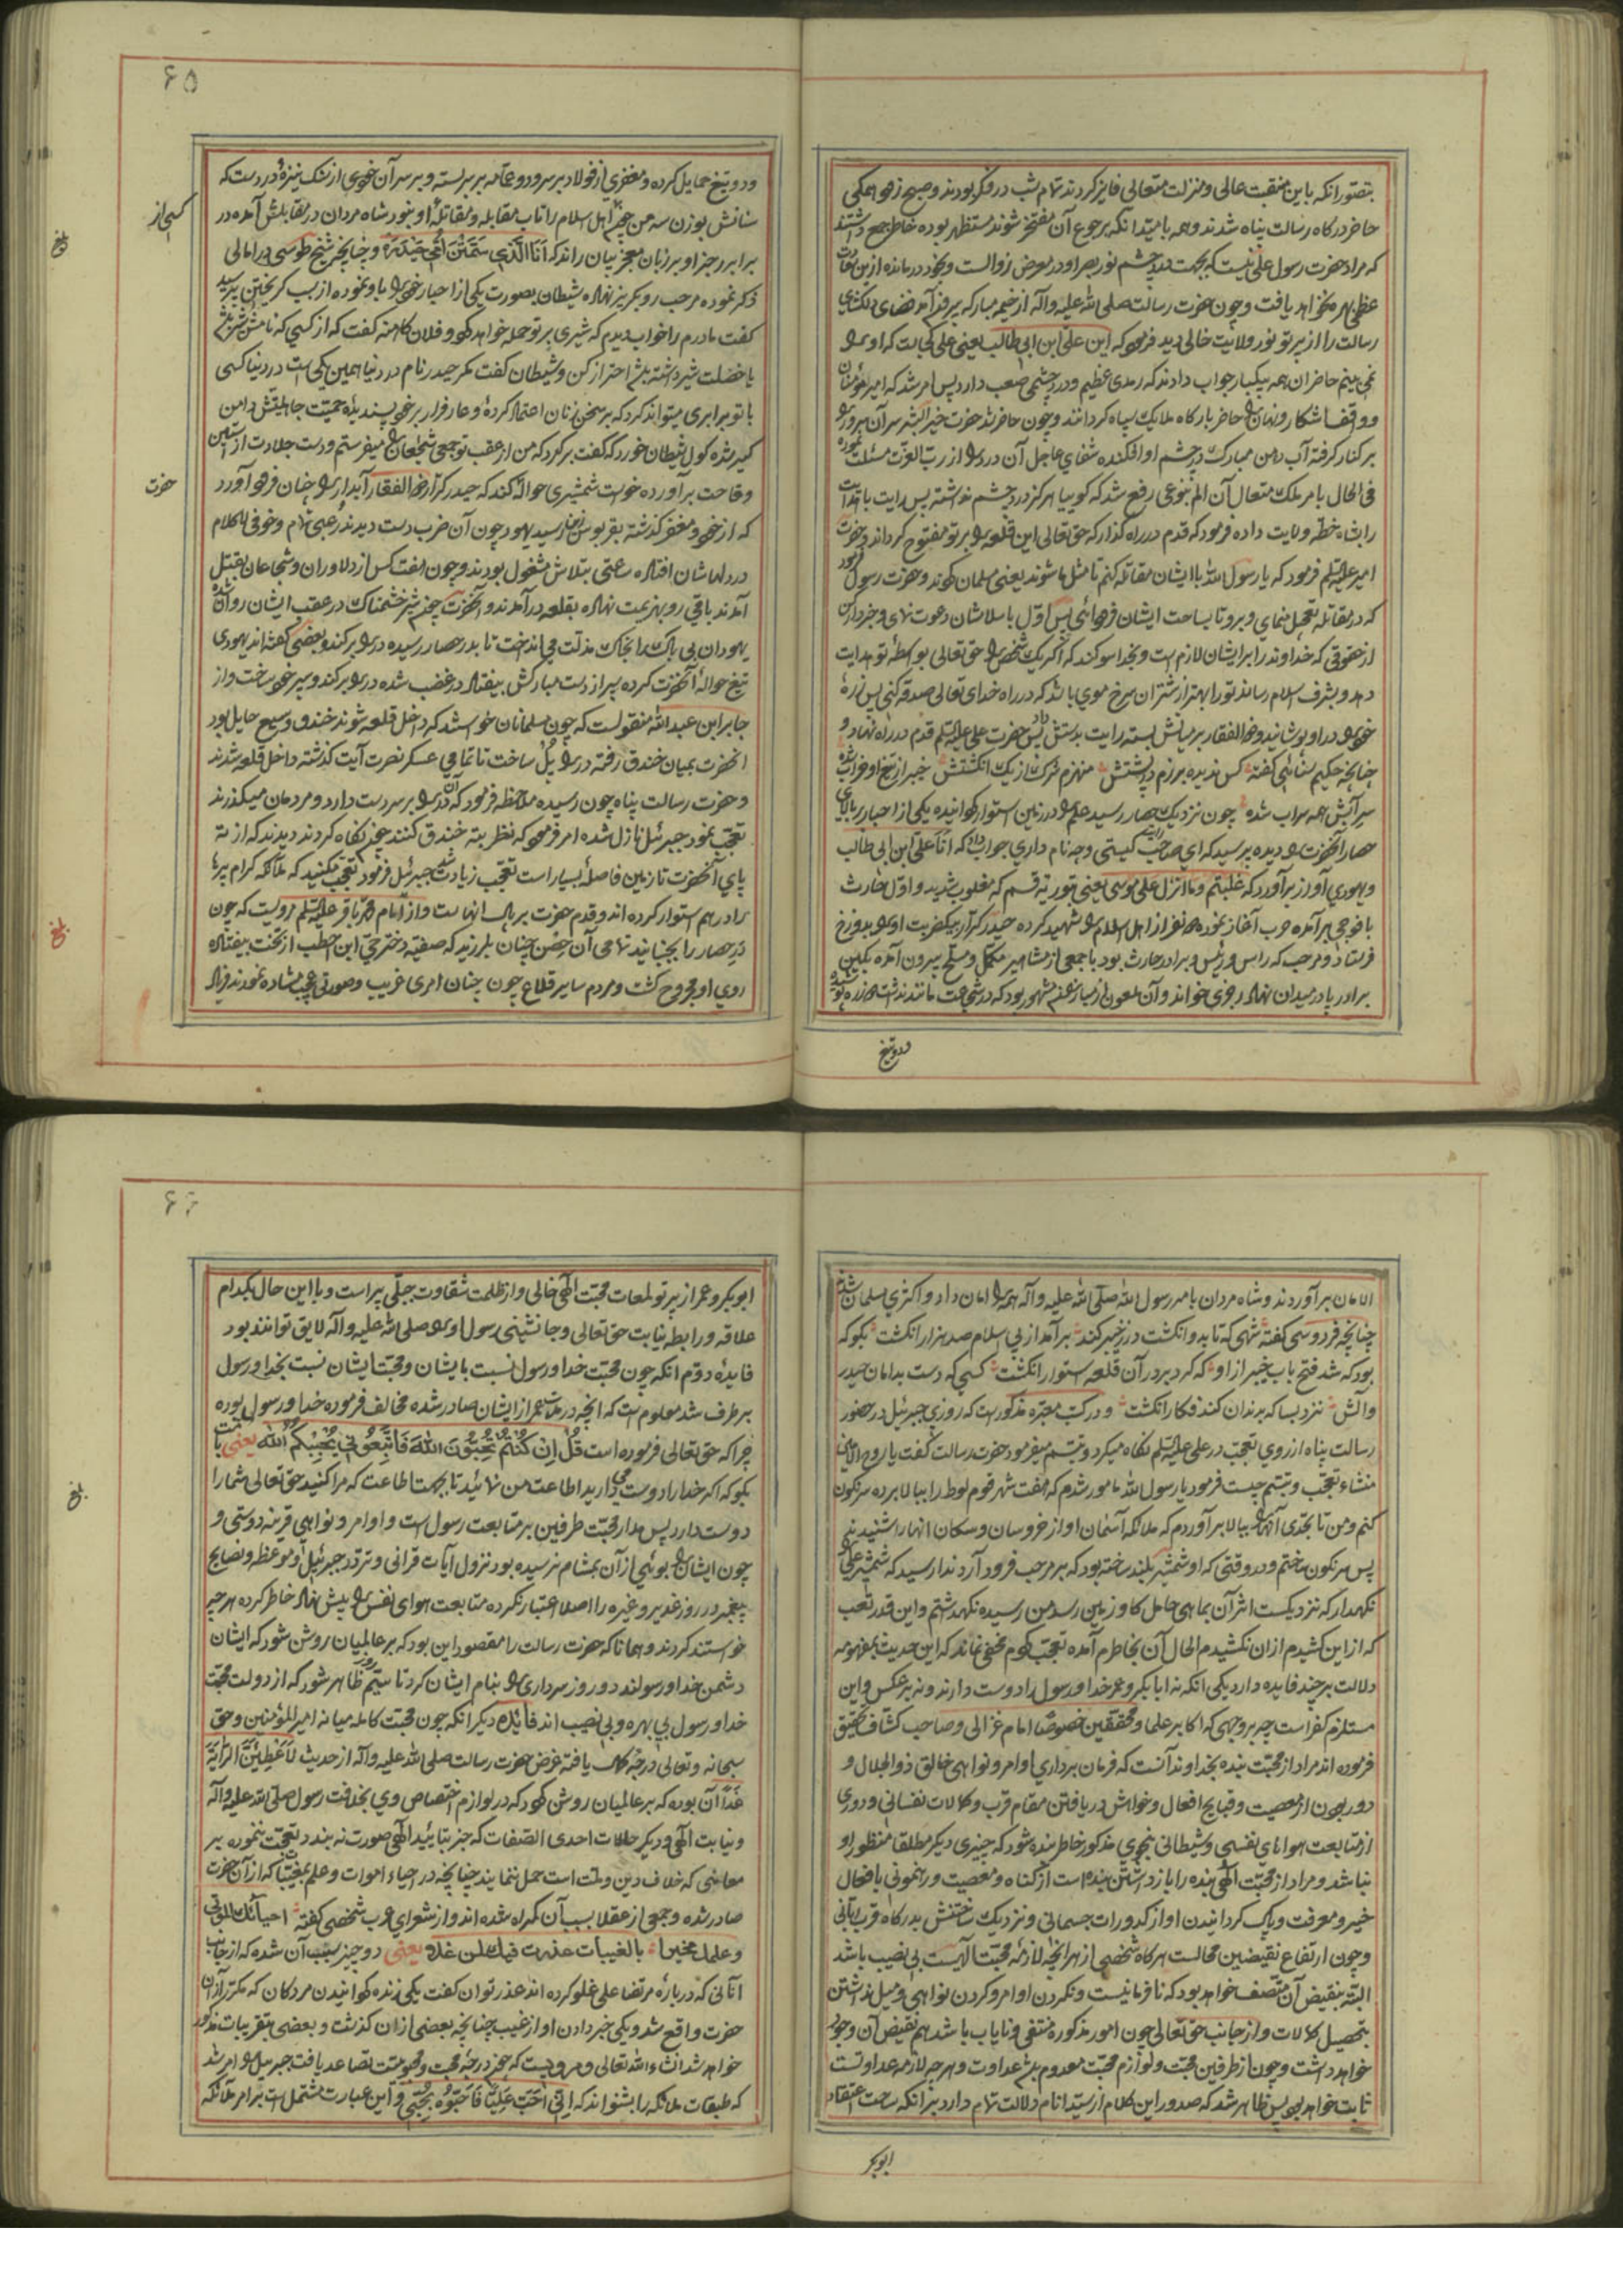 بتصور انکه باین منقبت عالی و منزلت متعالی فایز کردند تمام شب در فکر بودند و صبح زود همکی
حاضر درکاه رسالت پناه شدند و همه بامید انکه برجوع آن مفتخر شوند مستظهر بوده خاطر جمع داشتند
که مراد حضرت رسول علی نیست که بجهت درد چشم نور بصر او در معرض زوالست و بخود درمانده ازین
عظمی بهره نخواهد یافت و چون حضرت رسالت صلی الله علیه وآله از خیمه مبارکه بیرون آمد فضای دلکشای
رسالت را از پرتو نور ولایت خالی دید فرمود که این علی ابن ابی طالب یعنی علی کجاست که او را
نمی بینم حاضران همه بیکبار جواب دادند که رمدی عظیم و درد چشمی صعب دارد پس امر شد که امیر مؤمنان
و واقف اشکار و نهان را حاضر بارکاه ملایک سپاه کردانند و چون حاضر شد حضرت خیر البشر سر آن سرور را
بر کنار کرفته آب دهن مبارک در چشم او افکنده شفای عاجل آن درد را از رب العزت مسئلت نموده
فی الحال بامر ملک متعال آن الم بنوعی رفع شد که کوییا هرکز درد چشم نداشته پس رایت
را بشاه خطه ولایت داده فرمود که قدم در راه کذار که حق تعالی این قلعه را بر تو مفتوح کرداند و حضرت
امیر علیه السلم فرمود که یا رسول الله با ایشان مقاتله کنم تا مثل ما شوند یعنی مسلمان کردند و حضرت رسول فرمود
که در مقاتله تعجیل منمای و برو تا بساحت ایشان فرود آئی پس اول باسلامشان دعوت نمای و خبردار کن
از حقوقی که خداوند را بر ایشان لازم است و بخدا سوکند که اکر یک شخص را حق تعالی بواسطهٔ تو هدایت
دهد و بشرف اسلام رساند تو را بهتر از شتران سرخ موی باشد که در راه خدای تعالی صدقه کنی پس زرهٔ
خود را در او پوشانید و ذو الفقار بر میانش بسته رایت بدستش داد پس حضرت علی علیه السلم قدم در راه نهاد و
چنانچه حکیم سنائی کفته کس ندیده برزم در پشتش منهزم شرک از یک انکشتش خیبر از تیغ او خراب شده
سر آبش همه سراب شده چون نزدیک حصار رسید علم را در زمین استوار کردانیده یکی از احبار بر بالای
حصار آنحضرت را دیده پرسید که ای صاحب رایت کیستی و چه نام داری جواب داد که انا علی ابن ابی طالب
و یهودی آواز برآورد که غلبتم وما انزل علی موسی یعنی بتوریة قسم که مغلوب شدید و اول حارث
با فوجی برآمده حرب آغاز نموده چند نفر از اهل اسلام را شهید کرده حیدر کرار بیکضربت او را بدوزخ
فرستاد و مرحب که راس و رئیس و برادر حارث بود با جمعی از مشاهیر مکمل و مسلح بیرون آمده بکین
برادر پا در میدان نهاد رجزی خواند و آن ملعون مشهور بود که در شجاعت مانند نداشت دو زره پوشیده
ودوتیغ
۶۵
ودو تیغ حمایل کرده و مغفری از فولاد بر سر و دو عمامه بر سر بسته و بر سر آن خودی از سنک نیزهٔ در دست که
سنانش بوزن سه من چون اهل اسلام را تاب مقابله و مقاتلهٔ او نبود شاه مردان در مقابلش آمده در
کسی از
برابر رجز او بر زبان معجز بیان راند که اَنَا الَّذِی سَمَّتْنِی اُمِّی حَیْدَرَه و چنانچه شیخ طوسی در امالی
بلغ
ذکر نموده مرحب رو بکریز نهاد شیطان بصورت یکی از احبار خود را باو نموده از سبب کریختن پرسید
کفت مادرم را خواب دیدم که شیری بر تو حمله خواهد کرد و فلان کاهنه کفت که از کسی که نامش شیر باشد
یا خصلت شیر داشته باشد احتراز کن و شیطان کفت مکر حیدر نام در دنیا همین یکی است در دنیا کسی
با تو برابری میتواند کرد که بر سخن زنان اعتماد کردهٔ و عار فرار بر خود پسندیدهٔ حمیت جاهلیتش دامن
کیر شده کول شیطان خورد که کفت برکرد که من از عقب تو جمعی شجاعان را میفرستم و دست جلادت از آستین
وقاحت برآورده خواست شمشیری حواله کند که حیدر کرار ذو الفقار آبدار را چنان فرود آورد
حضرت
که از خود و مغفر کذشته بقربوس زین رسید یهود چون آن ضرب دست دیدند رعبی تمام و خوفی لاکلام
در دلهاشان افتاده ساعتی بتلاش مشغول بودند و چون هفت کس از دلاوران و شجاعان بقتل
آمدند باقی رو بهزیمت نهاده بقلعه درآمدند و آنحضرت چون شیر خشمناک در عقب ایشان روان شده
یهودان بی باک را بخاک مذلت می انداخت تا بدر حصار رسیده در را برکند و بعضی کفته اند یهودی
تیغ حوالهٔ آنحضرت کرده سپر از دست مبارکش بیفتاد در غضب شده در را برکند و سپر خود ساخت و از
جابر ابن عبد الله منقولست که چون مسلمانان خواستند که داخل قلعه شوند خندق وسیع حایل بود
آنحضرت بمیان خندق رفته در را پل ساخت تا تمامی عسکر نصرت آیت کذشته داخل قلعه شدند
و حضرت رسالت پناه چون رسیده ملاحظه فرمود که آن در را بر سر دست دارد و مردمان میکذرند
تعجب نمود جبرئیل نازل شده امر فرمود که نظر بته خندق کنند چون نکاه کردند دیدند که از ته
پای آنحضرت تا زمین فاصلهٔ بسیار است تعجب زیادت شد جبرئیل فرمود تعجب مکنید که ملائکه کرام پرها
را درهم استوار کرده اند و قدم حضرت بر بال انهاست و از امام محمد باقر علیه السلم مرویست که چون
بلغ
در حصار را بجنبانید تمامی آن حصن چنان بلرزید که صفیه دختر حی ابن اخطب از تخت بیفتاد
روی او مجروح کشت و مردم سایر قلاع چون چنان امری غریب و صورتی عجیب مشاهده نمودند فریاد
الامان برآوردند و شاه مردان بامر رسول الله صلی الله علیه وآله همه را امان داد و اکثری مسلمان شدند
چنانچه فردوسی کفته شهی که تا بدو انکشت در ز خیبر کند برآمد از پی اسلام صد هزار انکشت بکو که
بود که شد فتح باب خیبر از او که کرد بر در آن قلعه استوار انکشت کسی که دست بدامان حیدر
و آلش نزد بسا که بدندان کند فکار انکشت و در کتب معتبره مذکور است که روزی جبرئیل در حضور
رسالت پناه از روی تعجب در علی علیه السلم نکاه میکرد و تبسم میفرمود حضرت رسالت کفت یا روح الامین
منشاء تعجب و تبسم چیست فرمود یا رسول الله مامور شدم که هفت شهر قوم لوط را ببالا برده سرنکون
کنم و من تا بحدی آنها را ببالا برآوردم که ملائکه آسمان اواز خروسان و سکان انها را شنیدند
پس سرنکون ساختم و در وقتی که او شمشیر بلند ساخته بود که بر مرحب فرود آرد ندا رسید که شمشیر علی را
نکهدار که نزدیکست اثر آن بماهی حامل کاو زمین رسد من رسیده نکهداشتم و این قدر تعب
که از این کشیدم از آن نکشیدم الحال آن بخاطرم آمده تعجب کردم مخفی نماند که این حدیث بمفهومه
دلالت بر چند فایده دارد یکی انکه نه ابابکر و عمر خدا و رسول را دوست دارند و نه برعکس و این
مستلزم کفر است چه بر وجهی که اکابر علما و محققین خصوصا امام غزالی و صاحب کشاف تحقیق
فرموده اند مراد از محبت بنده بخداوند آنست که فرمان برداری اوامر و نواهی خالق ذو الجلال و
دور بودن از معصیت و قبایح افعال و خواهش دریافتن مقام قرب و کمالات نفسانی و دوری
از متابعت هواهای نفسی و شیطانی بنحوی مذکور خاطر بنده شود که چیزی دیکر مطلقا منظور او
نباشد و مراد از محبت الهی بنده را باز داشتن بنده است از کناه و معصیت و رهنمونی بافعال
خیر و معرفت و پاک کردانیدن او از کدورات جسمانی و نزدیک ساختنش بدرکاه قرب ربانی
و چون ارتفاع نقیضین محالست هرکاه شخصی از هر انچه لازمهٔ محبت الهیست بی نصیب باشد
البته بنقیض آن متصف خواهد بود که نافرمانیست و نکردن اوامر و کردن نواهی و میل نداشتن
بتحصیل کمالات و از جانب حق تعالی چون امور مذکوره منتفی و نایاب باشد هم نقیض آن وجود
خواهد داشت و چون از طرفین محبت و لوازم محبت معدوم باشد عداوت و هر چه لازمه عداوتست
ثابت خواهد بود پس ظاهر شد که صدور این کلام از سید انام دلالت تمام دارد بر انکه ساحت اعتقاد
ابوبکر
۶۶
ابوبکر و عمر از پرتو لمعات محبت الهی خالی و از ظلمت شقاوت جبلی پر است و با این حال بکدام
علاقه و رابطه نیابت حق تعالی و جانشینی رسول او صلی الله علیه وآله لایق توانند بود
فایدهٔ دوم انکه چون محبت خدا و رسول نسبت بایشان و محبت ایشان نسبت بخدا و رسول
برطرف شد معلوم است که انچه در مدت عمر از ایشان صادر شده مخالف فرموده خدا و رسول بوده
چرا که حق تعالی فرموده است قُلْ اِنْ کُنْتُمْ تُحِبُّونَ اللهَ فَاتَّبِعُونِی یُحْبِبْکُمُ اللهُ یعنی
بکو که اکر خدا را دوست می دارید اطاعت من نمائید تا بجهت اطاعت که مرا کنید حق تعالی شما را
بلغ
دوست دارد پس مدار محبت طرفین بر متابعت رسول است و اوامر و نواهی قرینه دوستی و
چون ایشان را بوئی از آن بمشام نرسیده بود نزول آیات قرآنی و تردد جبرئیل و موعظه و نصایح
پیغمبر در روز غدیر و غیره را اصلا اعتبار نکرده متابعت هوای نفس را پیش نهاد خاطر کرده هر چه
خواستند کردند و همانا که حضرت رسالت را مقصود این بود که بر عالمیان روشن شود که ایشان
دشمن خدا و رسولند دو روز سرداری را بنام ایشان کرد تا روز سیم ظاهر شود که از دولت محبت
خدا و رسول بی بهره و بی نصیب اند فایده دیکر انکه چون محبت کامله میانه امیر المؤمنین و حق
سبحانه و تعالی درجه کمال یافته غرض حضرت رسالت صلی الله علیه وآله از حدیث لَاُعْطِیَنَّ الرَّایَةَ
غَدًا آن بوده که بر عالمیان روشن کردد که در لوازم اختصاص وی بخلافت رسول صلی الله علیه وآله
و نیابت الهی و دیکر حالات احدی الصفات که جز بتائید الهی صورت نه بندد تعجب ننموده بر
معانی که خلاف دین و ملت است حمل ننمایند چنانچه در احیاء اموات و علم بمغیبات که از آن حضرت
صادر شده و جمعی از عقلا بسبب آن کمراه شده اند و از شعرای عرب شخصی کفته احیائک الموتی
و علمک مخبرا بالغیبات عذرت فیک لمن غلا یعنی دو چیز سبب آن شده که از جانب
آنانی که در بارهٔ مرتضا علی غلو کرده اند عذر توان کفت یکی زنده کردانیدن مردکان که مکرر از آن
حضرت واقع شد و یکی خبر دادن او از غیب چنانچه بعضی از آن کذشت و بعضی بتقریبات مذکور
خواهد شد انشاء الله تعالی و مرویست که چون درجهٔ محبت و محبوبیت تصاعد یافت جبرئیل را امر شد
که طبقات ملائکه را بشنواند که اِنِّی اُحِبُّ عَلِیًّا فَاَحِبُّوهُ بِحُبِّی و این عبارت مشتمل است بر امر ملائکه